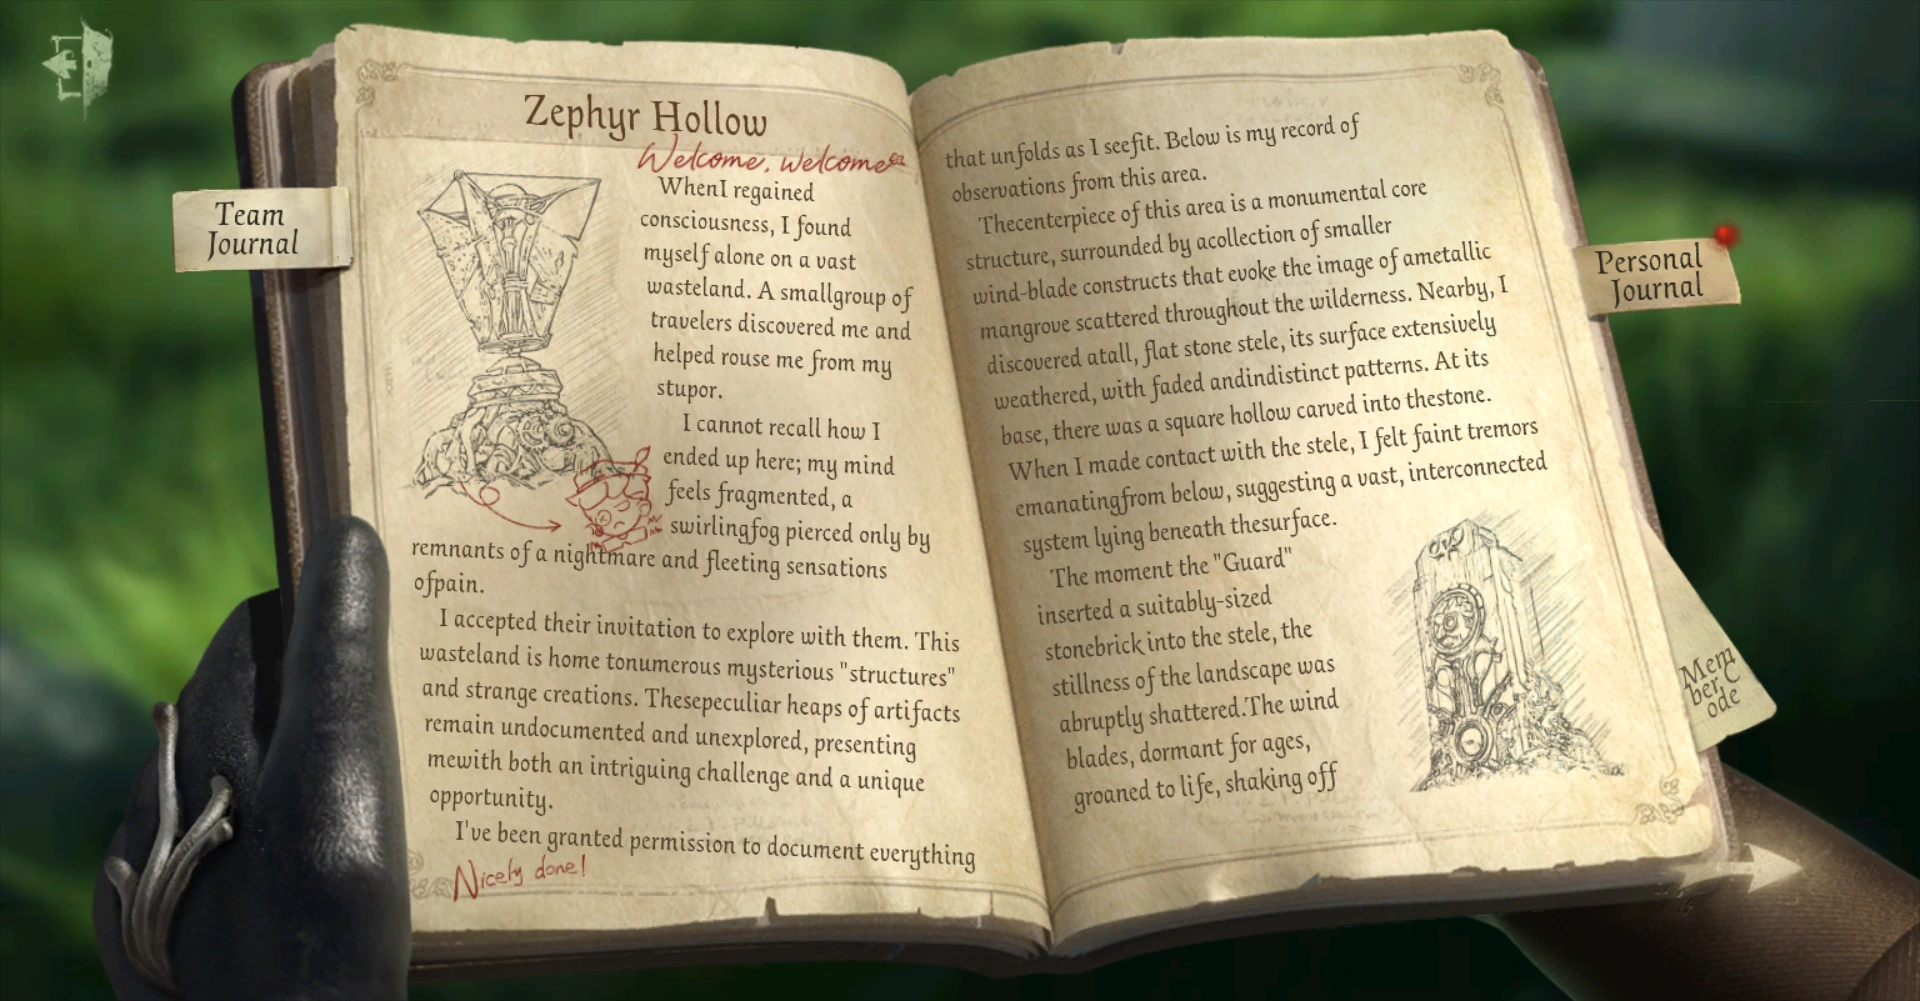 Zephyr Hollow
Welcome, welcome
WhenI regained
consciousness, I found
myself alone on a vast
wasteland. A smallgroup of
travelers discovered me and
helped rouse me from my
stupor.
I cannot recall how I
ended up here; my mind
feels fragmented, a
swirlingfog pierced only by
remnants of a nightmare and fleeting sensations
ofpain.
I accepted their invitation to explore with them. This
wasteland is home tonumerous mysterious "structures"
and strange creations. Thesepeculiar heaps of artifacts
remain undocumented and unexplored, presenting
mewith both an intriguing challenge and a unique
opportunity.
I've been granted permission to document everything
Nicely done!
that unfolds as I seefit. Below is my record of
observations from this area.
Thecenterpiece of this area is a monumental core
structure, surrounded by acollection of smaller
wind-blade constructs that evoke the image of ametallic
mangrove scattered throughout the wilderness. Nearby, I
discovered atall, flat stone stele, its surface extensively
weathered, with faded andindistinct patterns. At its
base, there was a square hollow carved into thestone.
When I made contact with the stele, I felt faint tremors
emanatingfrom below, suggesting a vast, interconnected
system lying beneath thesurface.
The moment the "Guard"
inserted a suitably-sized
stonebrick into the stele, the
stillness of the landscape was
abruptly shattered.The wind
blades, dormant for ages,
groaned to life, shaking off
Team
Journal
Personal
Journal
Mem
ber C
ode